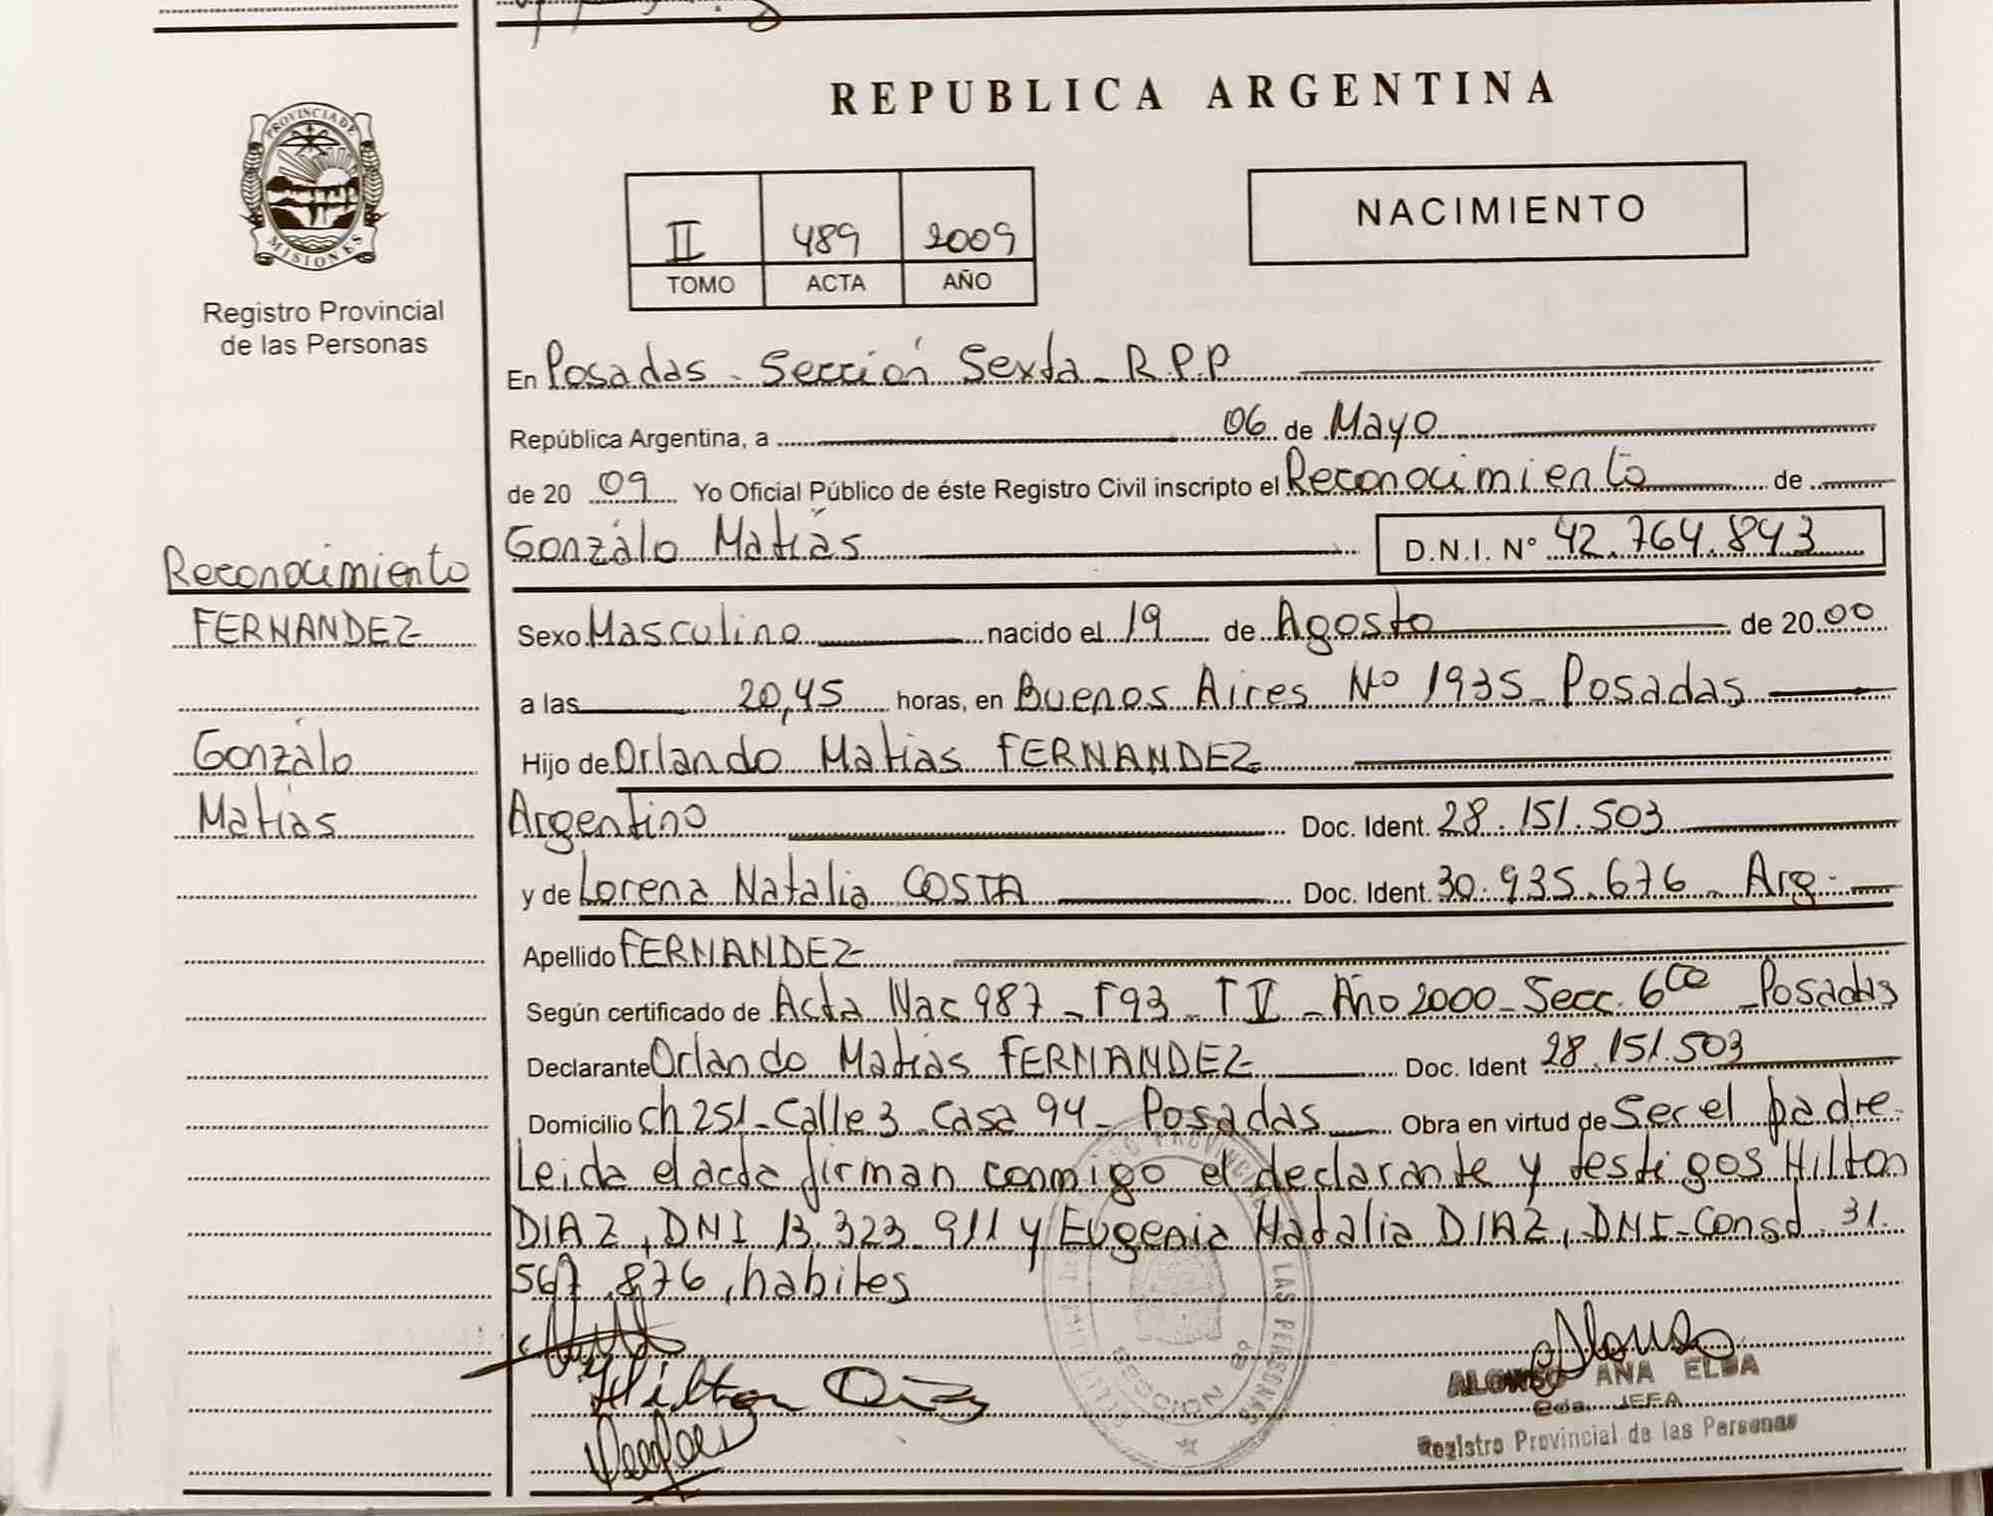 REPUBLICA ARGENTINA
PROVINCIA DE
MISIONES
Registro Provincial
de las Personas
II 489 2009
TOMO ACTA AÑO
NACIMIENTO
En Posadas - Sección Sexta - R.P.P
República Argentina, a 06 de Mayo
de 20 09 Yo Oficial Público de éste Registro Civil inscripto el Reconocimiento de
Gonzálo Matías D.N.I. Nº 42.764.843
Reconocimiento
FERNANDEZ
Gonzálo
Matías
Sexo Masculino nacido el 19 de Agosto de 20 00
a las 20,45 horas, en Buenos Aires Nº 1935 - Posadas
Hijo de Orlando Matías FERNANDEZ
Argentino Doc. Ident. 28.151.503
y de Lorena Natalia COSTA Doc. Ident. 30.935.676 - Arg.
Apellido FERNANDEZ
Según certificado de Acta Nac 987 - F93 - T V - Año 2000 - Secc. 6ta - Posadas
Declarante Orlando Matías FERNANDEZ Doc. Ident 28.151.503
Domicilio ch 251 - Calle 3 - Casa 94 - Posadas Obra en virtud de Ser el padre -
Leida el acta firman conmigo el declarante y testigos Hilton
DIAZ, DNI 13.323.911 y Eugenia Natalia DIAZ, DNI - Consd. 31.
567.876, habiles
Hilton Diaz
Alonso
ALONSO ANA ELBA
Cda. JEFA
Registro Provincial de las Personas